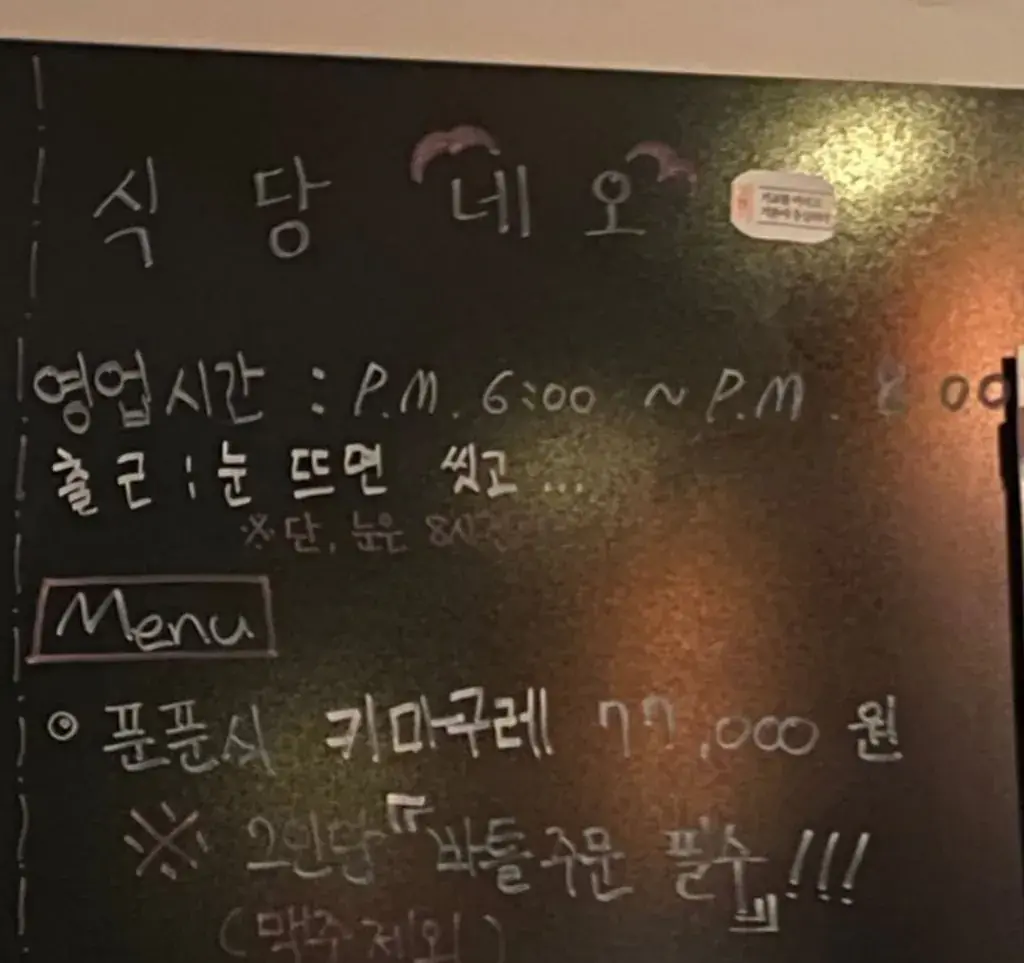 식당 네오
영업시간 : P.M. 6:00 ~ P.M. 8:00
출근 : 눈 뜨면 씻고 ...
※단, 눈은 8시간
Menu
⊙ 푼푼식 키마구레 77,000 원
※ 2인당 『바틀주문 필수』!!!
(맥주제외)